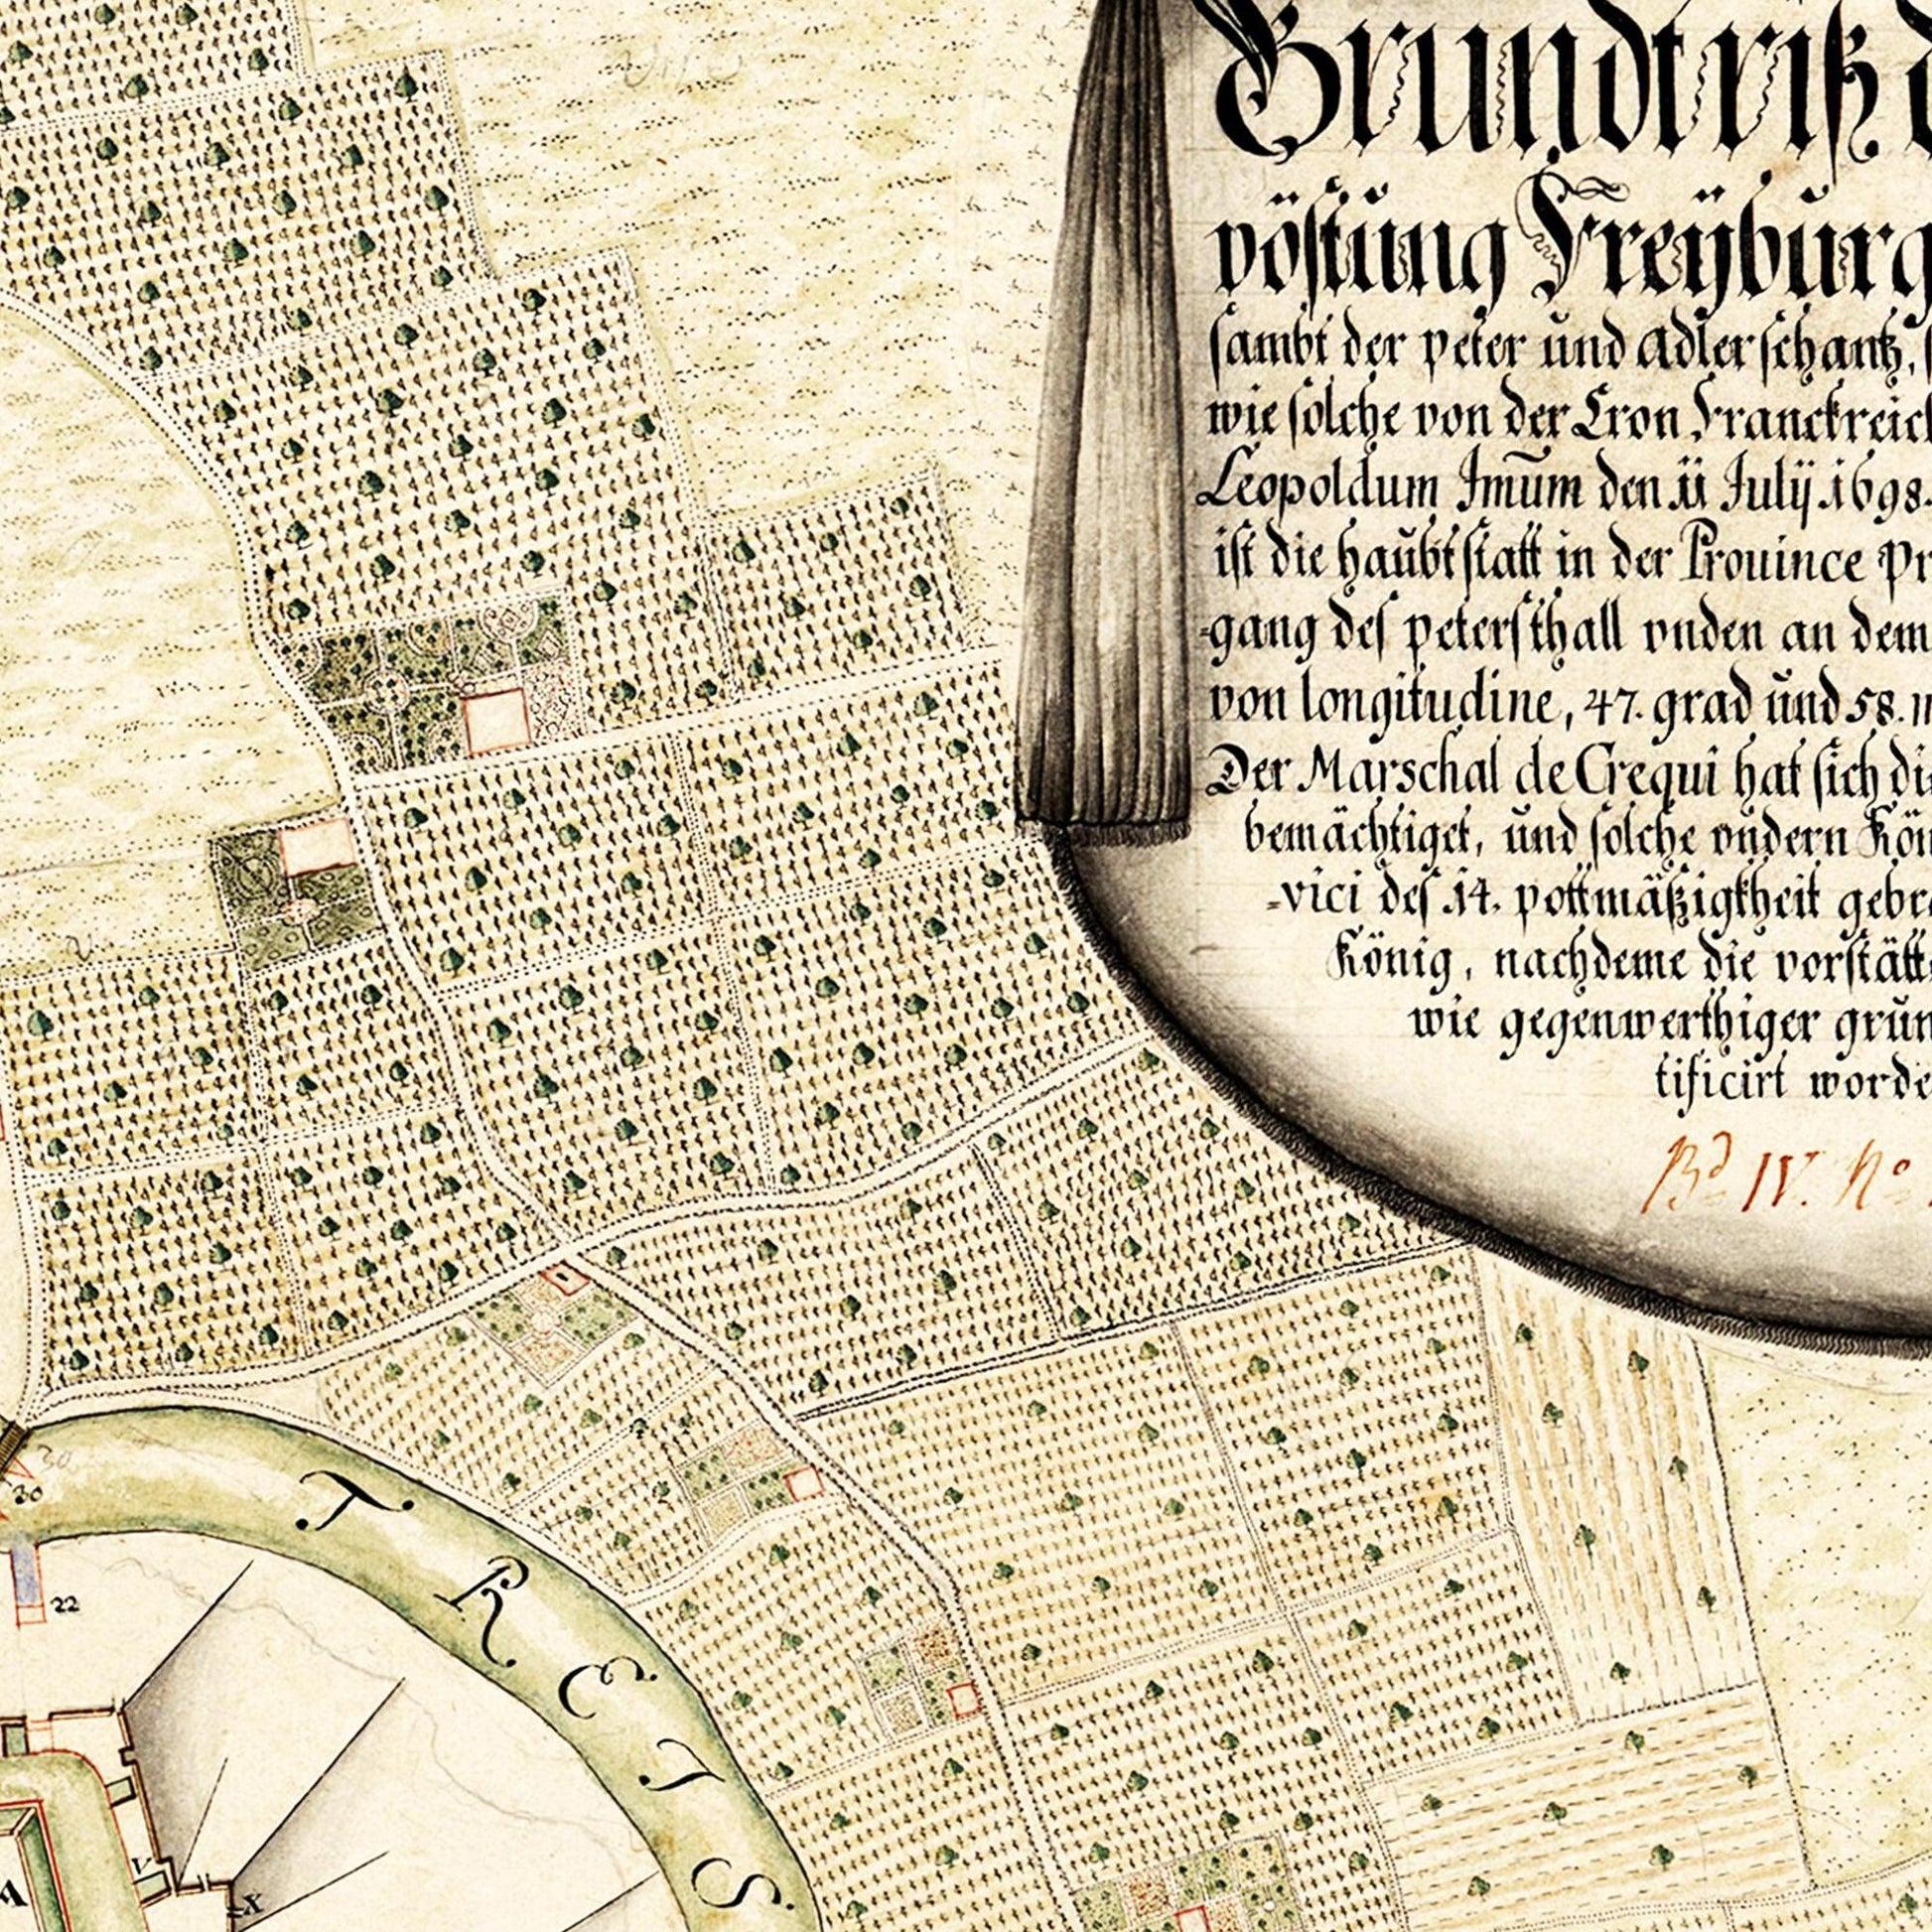 Grundtriß d
vöstung Freÿburg
sambt der peter und adlerschantz, s
wie solche von der Cron Franckreich
Leopoldum Imum̄ den ii Julÿ i698.
ist die haubtstatt in der Prouince Pr
gang des petersthall vnden an dem
von longitudine, 47. grad und 58. m
Der Marschal de Crequi hat sich die
bemächtiget, und solche vndern Kön
vici des i4. pottmäßigkheit gebra
König, nachdeme die vorstätt
wie gegenwerthiger grun
tificirt worde
Bd IV. No
30
30
TREIS
22
V
X